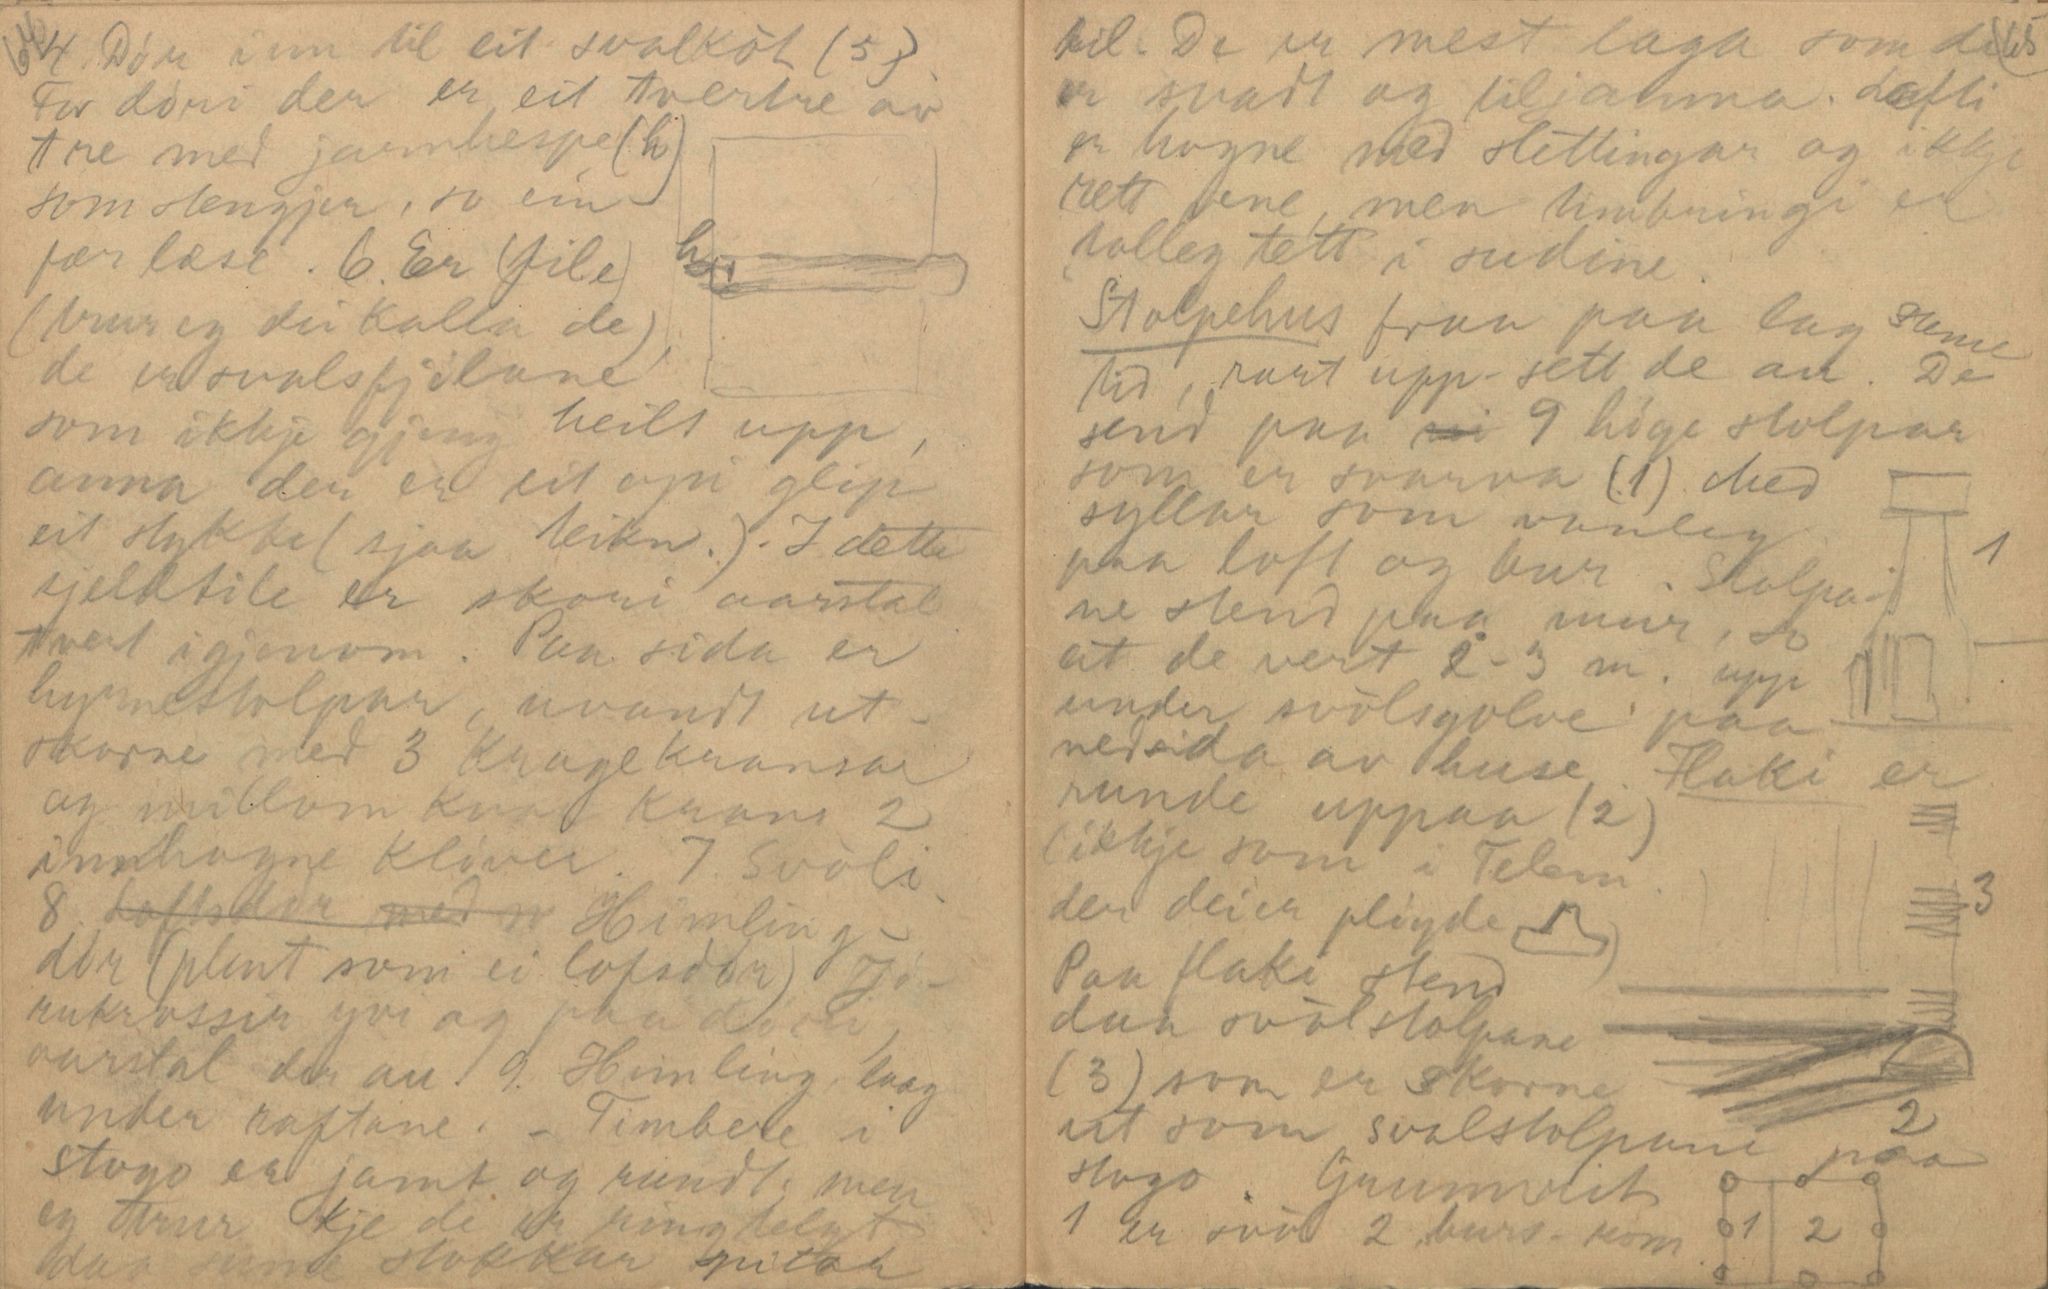 64
4. Dör inn til eit svalköt (5).
For döri der er eit tvertre av
tre med jarnhespe (h)
som stengjer, so ein
fær læse. 6. Er (file)
(trur eg dei kalla de)
de er svalsfjölane
som ikkje gjeng heilt upp,
anna der er eit opi glip
eit stykke (sjaa teikn.). I dette
sjølve er skori aarstal
tvert igjenom. Paa sida er
hyrnestolpar, uvandt ut-
skorne med 3 Kragekransar
og millom kvar krans 2
innhogne klöver. 7. Svöli.
8. Loftsdör med Himling-
dör (plent som ei loftsdör) Tjö-
rukrossir yvi og paa döri,
aarstal der au. 9. Himling laag
under raftane. - Timbere i
stogo er jamt og rundt, men
eg trur kje de er ringtelgt
daa sume stokkar spitar
h
65
til. De er mest laga som de
er svadt og tiljamna. Lafti
er hogne med slettingar og ikkje
rett ene, men timbringi er
tolleg tett i sudine.
Stolpehus fraa paa lag same
tid, rart upp-sett de au. De
stend paa 9 höge stolpar
som er svarva (1). Med
syllar som vanleg
paa loft og bur. Stolpa-
ne stend paa mur, so
at de vert 2-3 m. upp
under svölsgolve paa
nedsida av huse. Flaki er
runde uppaa (2)
(ikkje som i Telem.
der dei er plögde )
Paa flaki stend
daa svölstolpane
(3) som er skorne
ut som svalstolpane paa
stogo. Grunnrit
1 er svöl 2 burs-rom
1
3
2
1 2